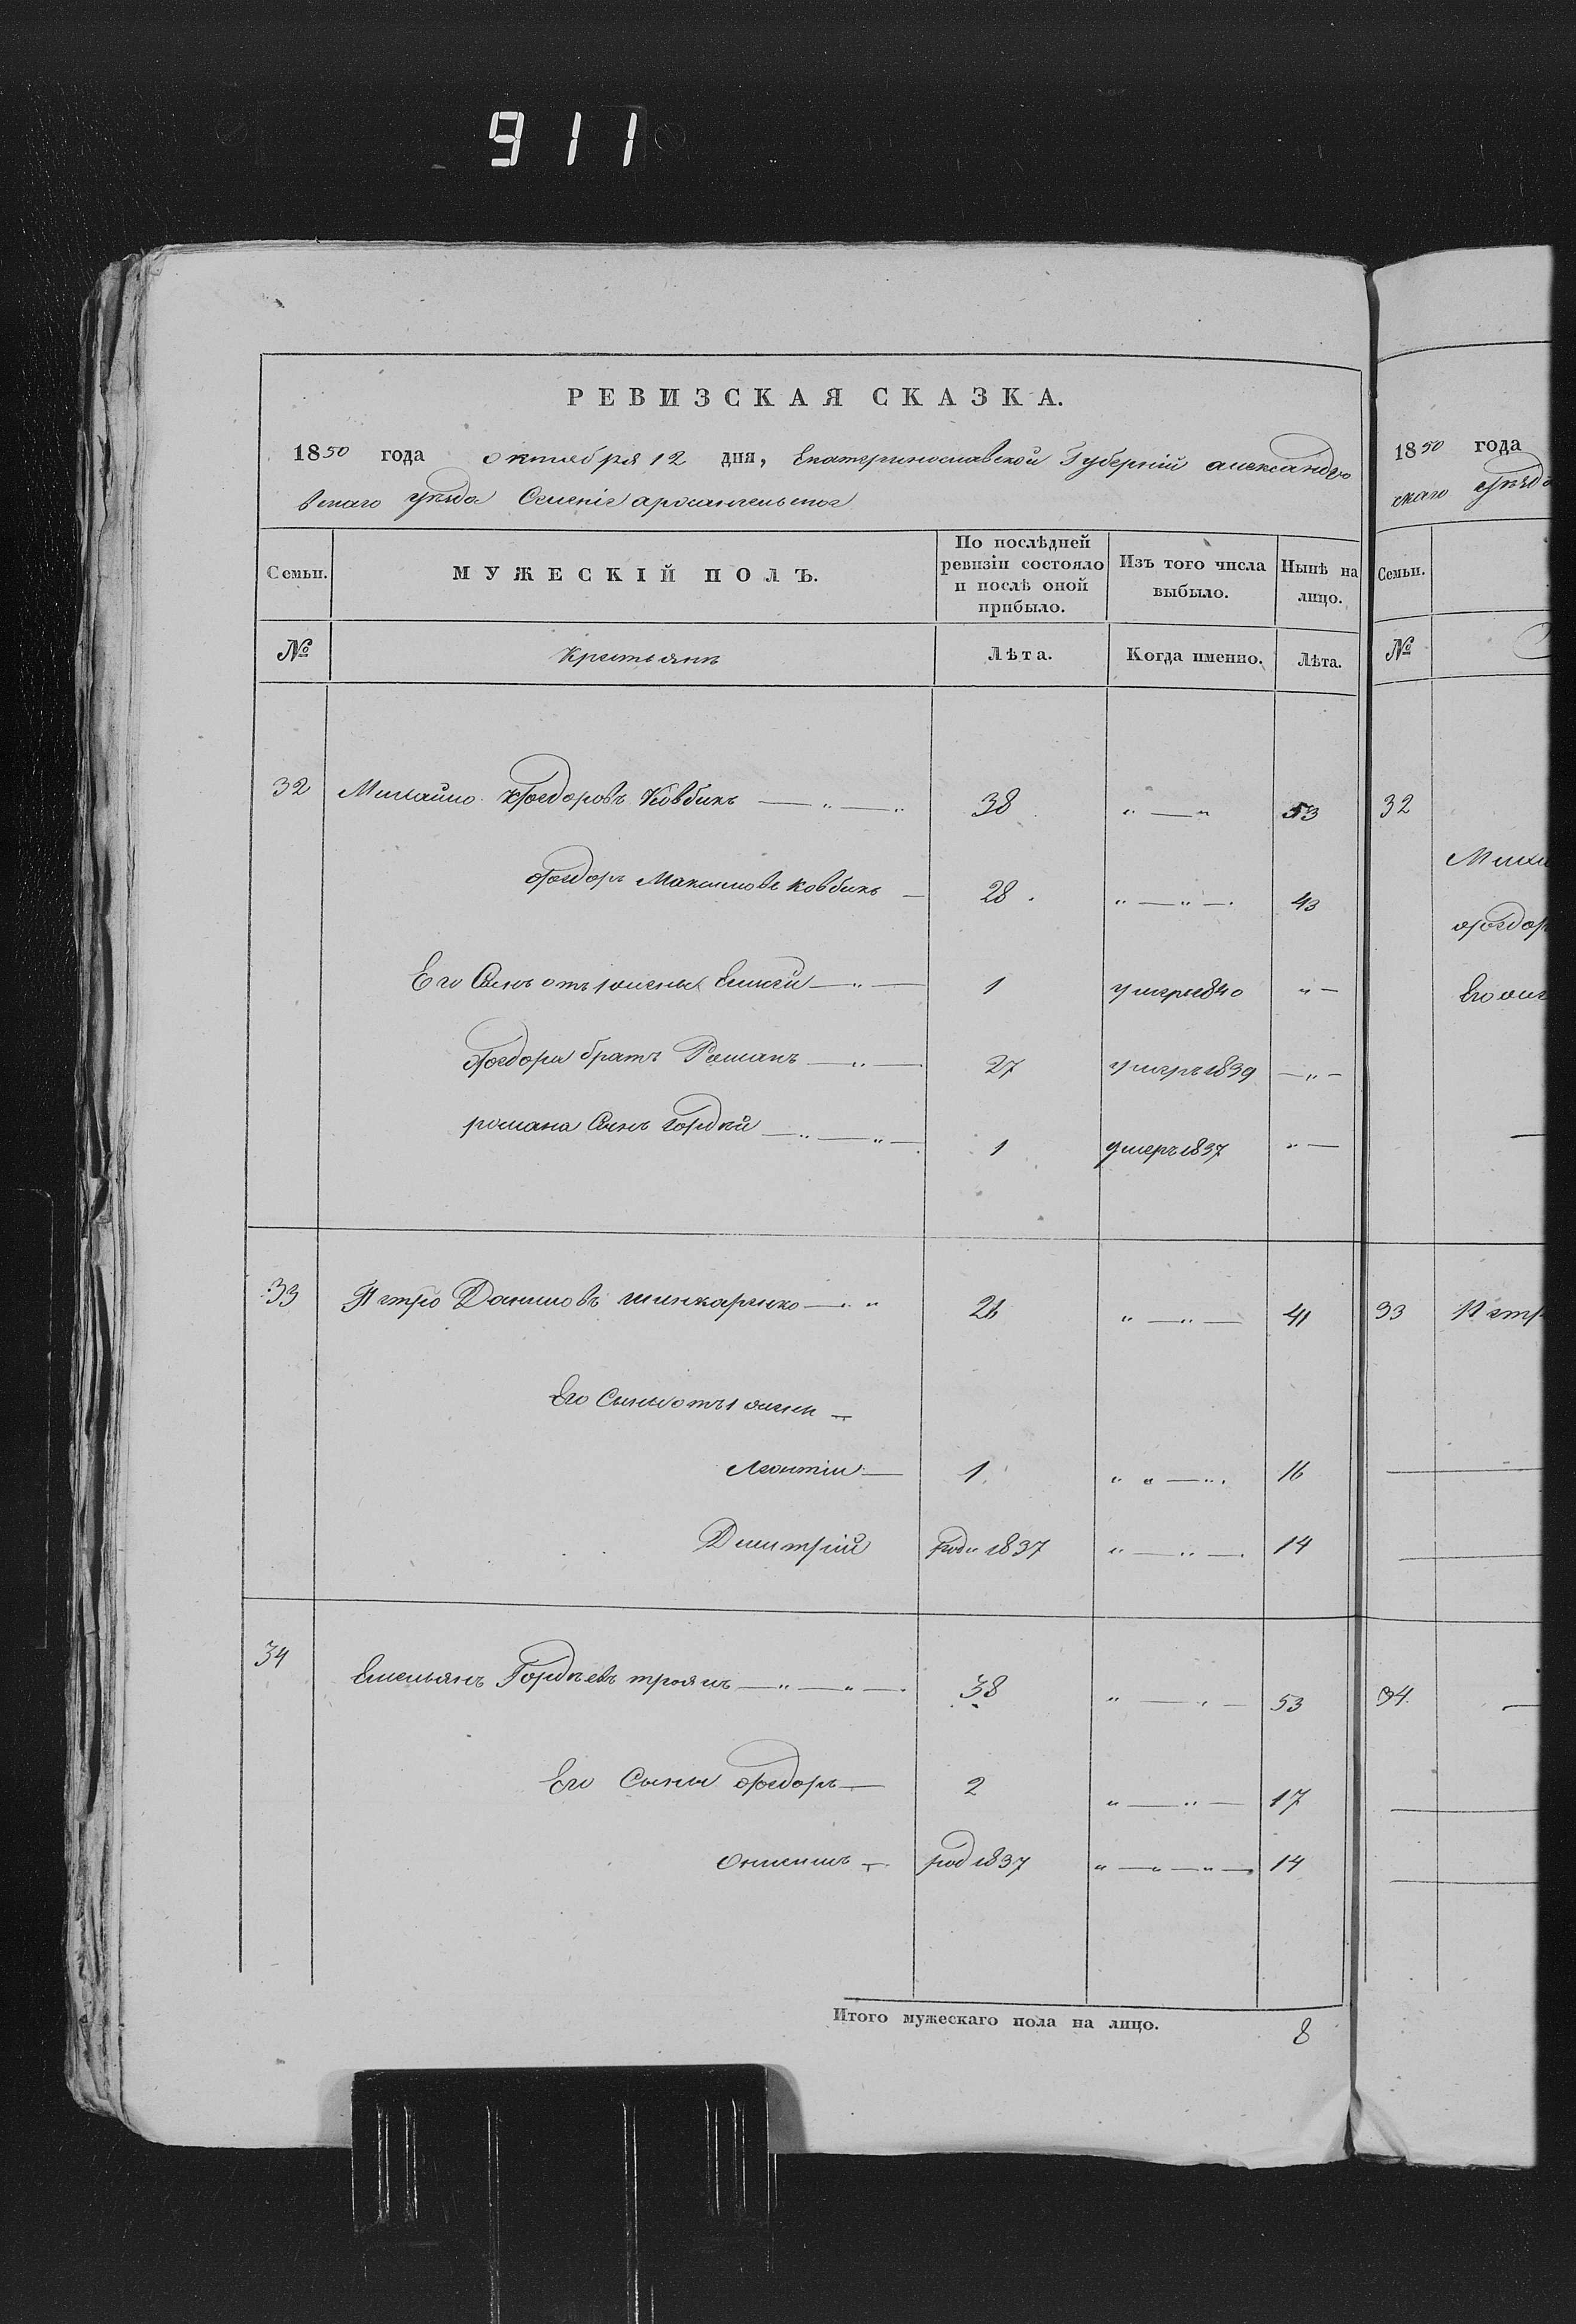 911
РЕВИЗСКАЯ СКАЗКА.
1850 года октября 12 дня, Екатеринославской Губерніи александро
вскаго уѣзда Селеніе архангельское
Семьи. МУЖЕСКІЙ ПОЛЪ. По послѣдней ревизіи состояло и послѣ оной прибыло. Изъ того числа выбыло. Нынѣ на лицо.
№ Крестьянъ Лѣта. Когда именно. Лѣта.
32 Михайло Федоровъ Ковбинъ — „ — „ 38 „ — „ 53
Федоръ Максимовъ Ковбинъ — 28 „ — „ — 43
Его Сынъ отъ 1 жены Елисей — „ — 1 умеръ 1840 „ —
Федора братъ Романъ — „ — 27 умеръ 1839 — „ —
романа Сынъ Гордѣй — „ — „ — 1 умеръ 1837 „ —
33 Петро Даниловъ шинкаренко — „ 26 „ — „ — 41
Его Сыны отъ 1 жены —
Леонтій — 1 „ „ — „ 16
Дмитрій роди 1837 „ — „ — 14
34 Емельянъ Гордѣевъ троянъ — „ — „ — 38 „ — „ — 53
Его Сыны Федоръ — 2 „ — „ — 17
Онисимъ — род 1837 „ — „ — „ — 14
Итого мужескаго пола на лицо. 8
1850 года
скаго уѣзда
Семьи.
№
32
Федор
Его
33 Петр
34